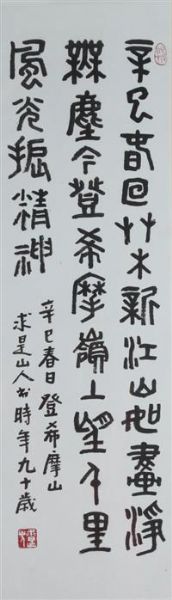 辛巳春回艸木新江山如畫淨
無塵今登希摩嶺上望千里
風光振精神
辛巳春日登希摩山
求是山人書時年九十歲